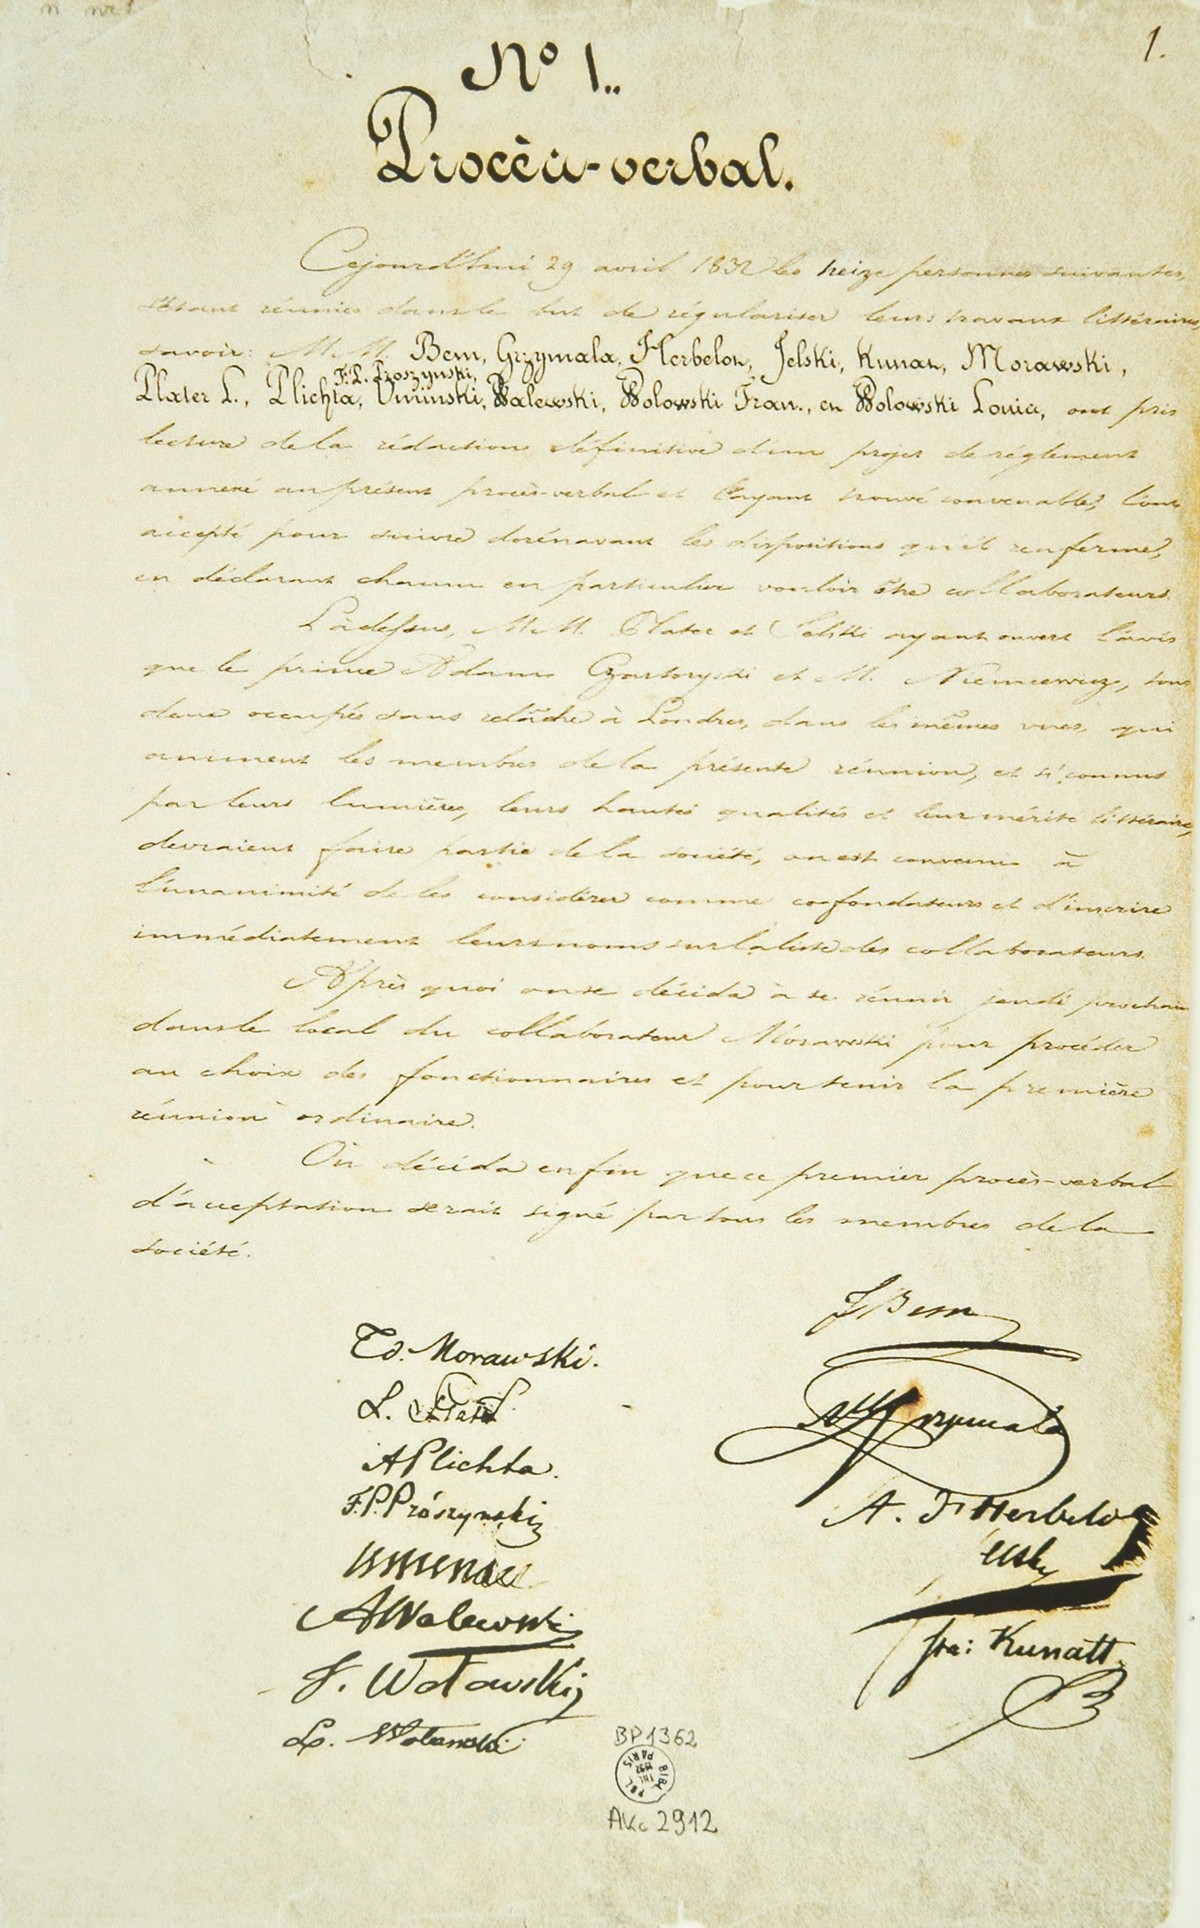 1.
Nº 1.
Procès-verbal.
Cejourd'hui 29 avril 1832 les treize personnes suivantes,
s'étant réunies dans le but de régulariser leurs travaux littéraires,
savoir: M.M. Bem, Grzymala, Herbelot, Jelski, Kunat, Morawski,
F.P. Proszynski,
Plater L., Plichta, Umiński, Walewski, Wolowski Fran., et Wolowski Louis, ont pris
lecture de la rédaction définitive d'un projet de réglement
annexé au présent procès-verbal et l'ayant trouvé convenable, l'ont
accepté pour suivre dorénavant les dispositions qu'il renferme,
en déclarant chacun en particulier vouloir être collaborateurs.
Là-dessus, M.M. Plater et Jelski ayant ouvert l'avis
que le prince Adam Czartoryski et M. Niemcewicz, tous
deux occupés sans relâche à Londres, dans les mêmes vues, qui
animent les membres de la présente réunion, et si connus
par leurs lumières, leurs hautes qualités et leur mérite littéraire,
devraient faire partie de la société, on est convenu à
l'unanimité de les considérer comme co-fondateurs et d'inscrire
immédiatement leurs noms sur la liste des collaborateurs.
Après quoi on se décida à se réunir jeudi prochain
dans le local du collaborateur Morawski pour procéder
au choix des fonctionnaires et pour tenir la première
réunion ordinaire.
On décida enfin que ce premier procès-verbal
d'acceptation serait signé par tous les membres de la
société.
J Bem
Td. Morawski.
L. Plater
Grzymala
A Plichta.
A. F. Herbelot
F.P. Prószyński
Jelski
A Walewski
Fra: Kunatt
F. Wołowski
L. Wołowski
BP 1362
BIBL. POL. PARIS
Akc 2912